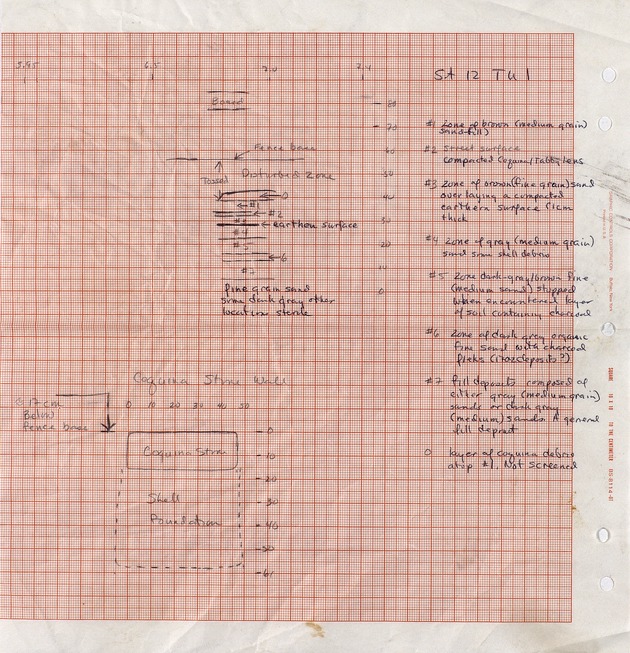 SA 12 TU 1
6.5
7.0
Board
80
70
60
50
40
30
20
10
0
Fence base
Disturbed Zone
Tossed
0
#1
#2
earthen surface
#4
#5
6
#7
fine grain sand
some dark gray other
location sterile
#1 Zone of brown (medium grain)
sand-fill)
#2 Street surface
compacted Coquina/Tabby Lens
#3 Zone of brown (fine grain) sand
overlaying a compacted
earthern surface (1cm
thick
#4 Zone of gray (medium grain)
sand some shell debris
#5 Zone dark-gray/brown fine
(medium sand) stopped
when encountered layer
of soil containing charcoal
#6 Zone of dark gray organic
fine sand with charcoal
fleks (1702 deposits?)
#7 fill deposits composed of
either gray (medium grain)
sands or dark gray
(medium) sands A general
fill deposit
0 layer of coquina debris
atop #1. Not screened
Coquina Stone Wall
17 cm
Below
Fence base
0 10 20 30 40 50
0
10
20
30
40
50
61
Coquina Stone
Shell
Foundation
SQUARE 10 X 10 TO THE CENTIMETER